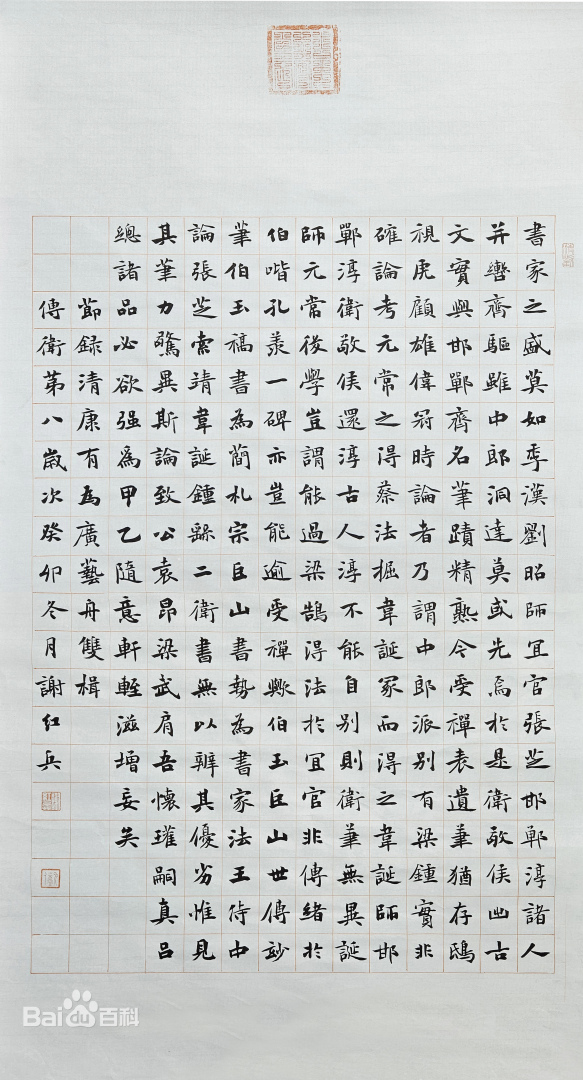 書家之盛莫如季漢劉昭師宜官張芝邯鄲淳諸人
并轡齊驅雖中郎洞達莫或先焉於是衛敬侯出古
文實與邯鄲齊名筆蹟精熟今受禪表遺筆猶存鴟
視虎顧雄偉冠時論者乃謂中郎派別有梁鍾實非
確論考元常之得蔡法掘韋誕冢而得之韋誕師邯
鄲淳衛敬侯還淳古人淳不能自別則衛筆無異誕
師元常後學豈謂能過梁鵠得法於宜官非傳緒於
伯喈孔羨一碑亦豈能逾受禪歟伯玉巨山世傳妙
筆伯玉稿書為簡札宗巨山書勢為書家法王侍中
論張芝索靖韋誕鍾繇二衛書無以辨其優劣惟見
其筆力驚異斯論致公袁昂梁武肩吾懷瓘嗣真呂
總諸品必欲强為甲乙隨意軒輊滋增妄矣
節録清康有為廣藝舟雙楫
傳衛第八歲次癸卯冬月謝紅兵
Bai百科